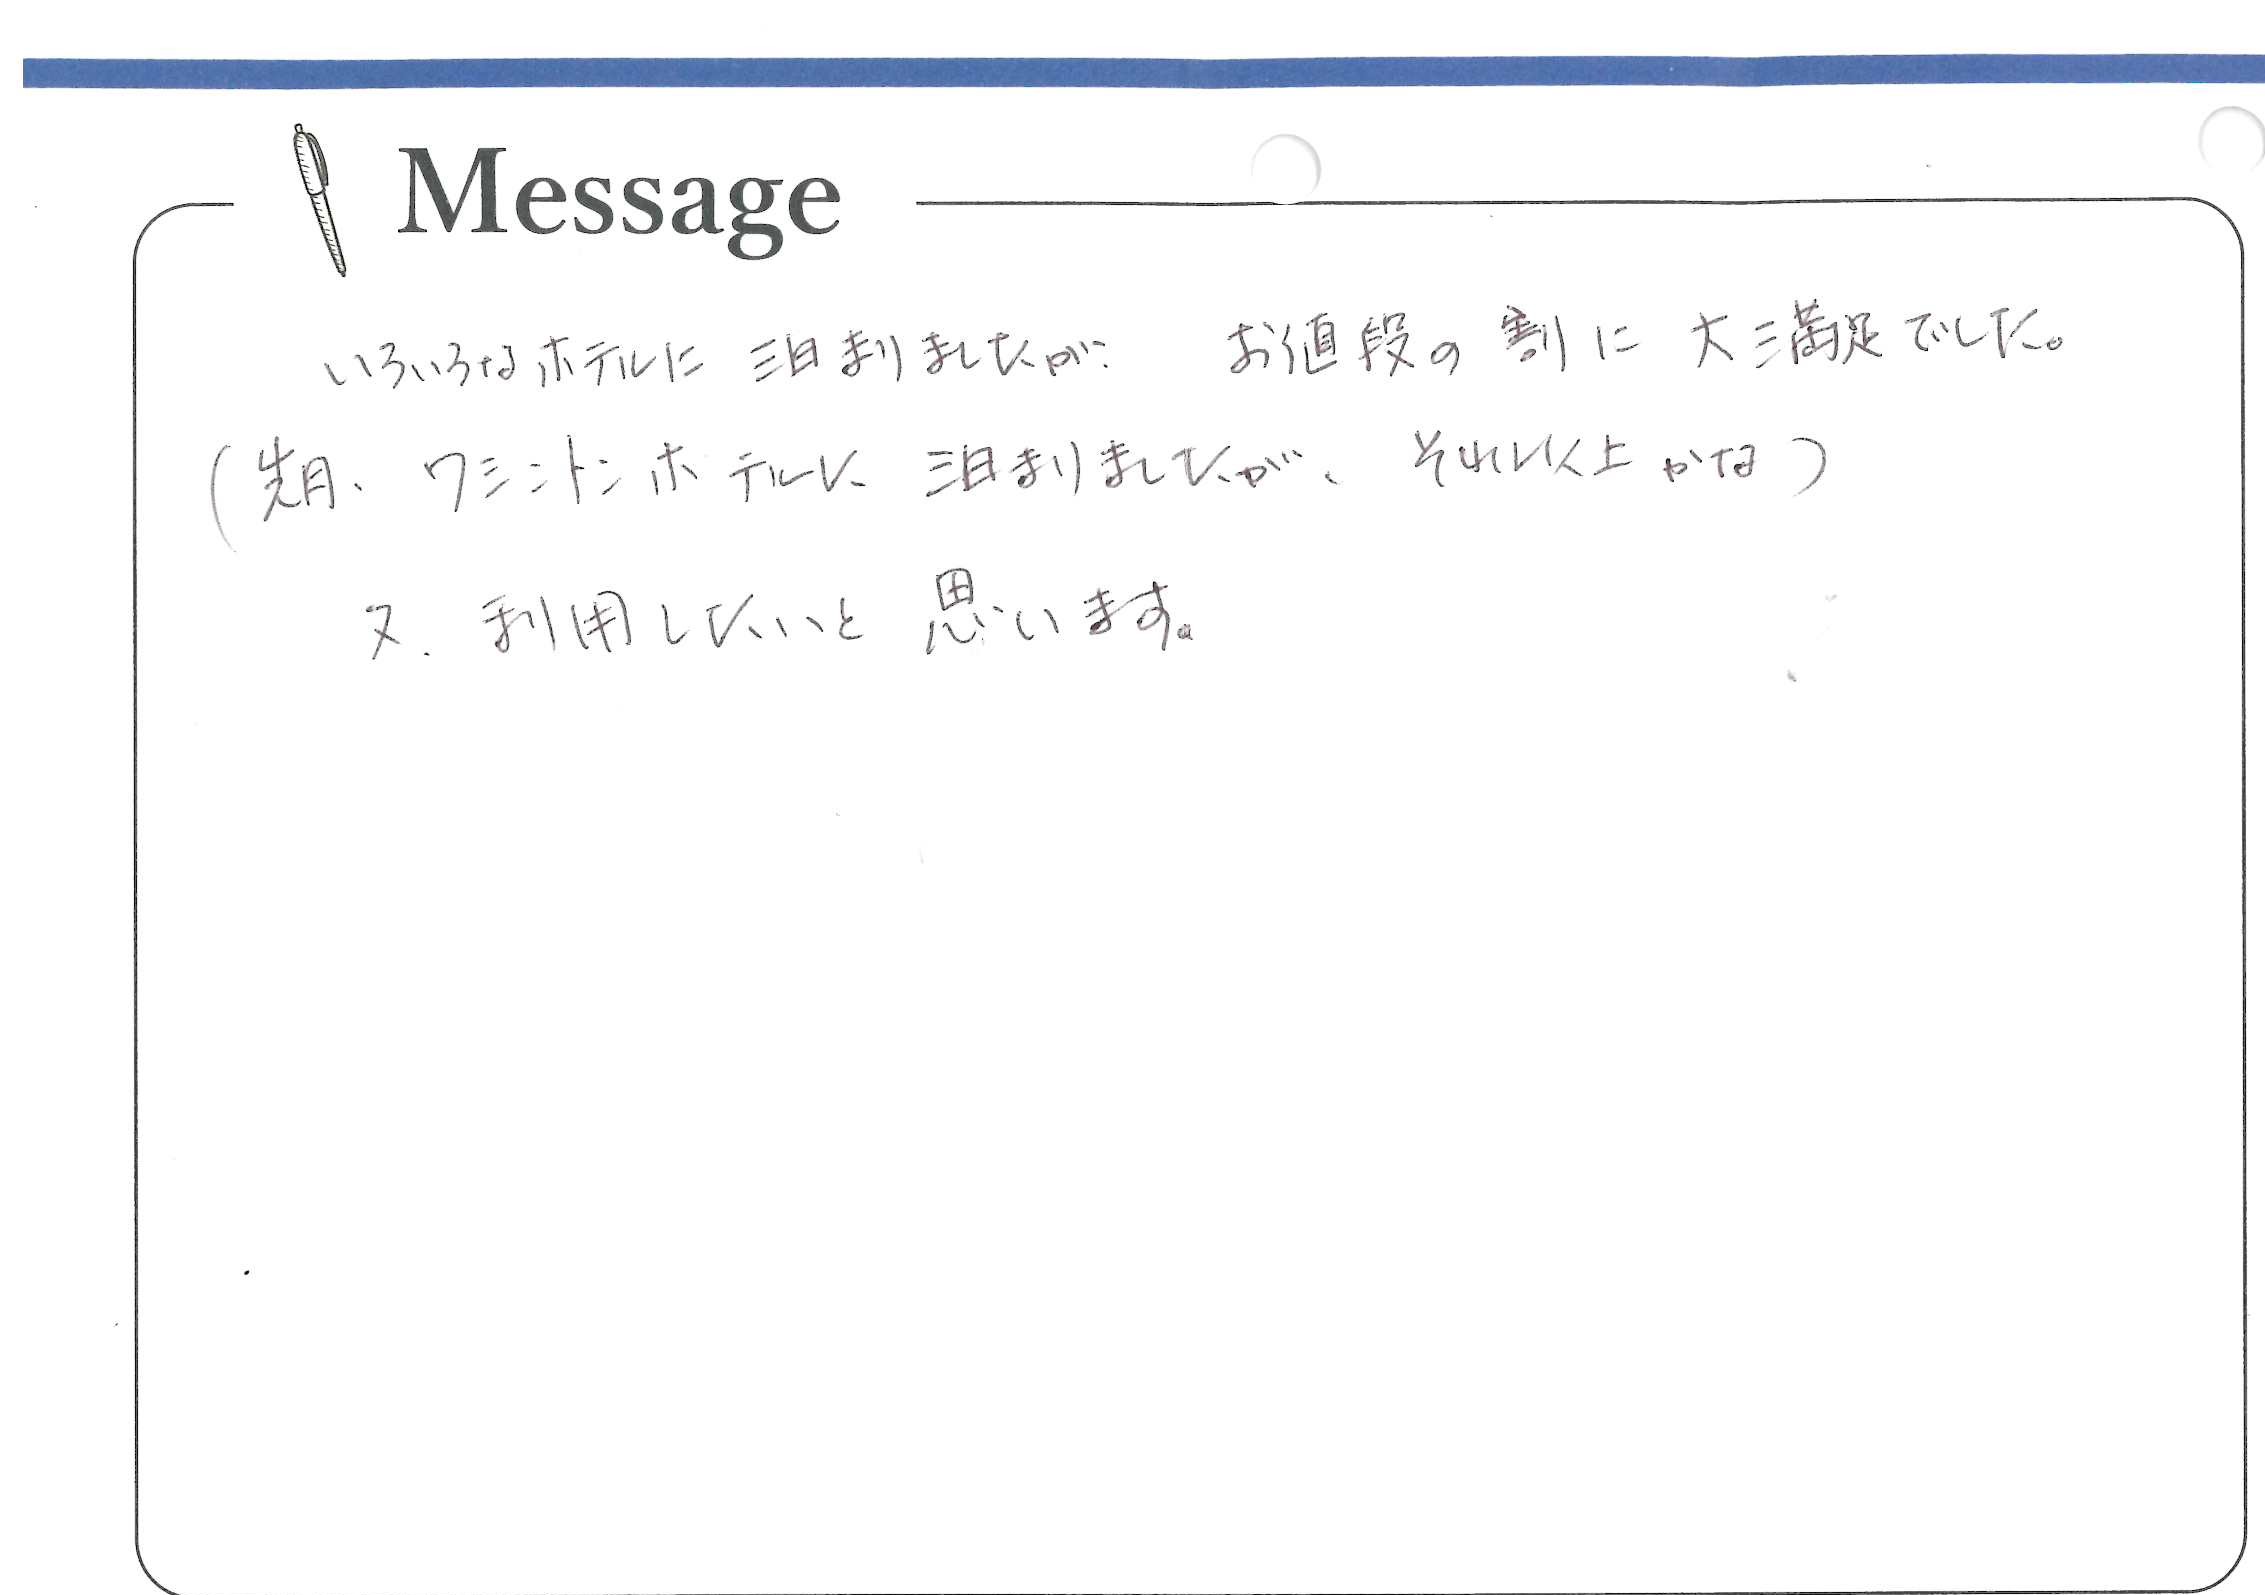 Message
いろいろなホテルに 泊まりましたが、 お値段の 割に 大満足でした。
(先月、ワシントンホテルに 泊まりましたが、それ以上かな)
又、利用したいと 思います。